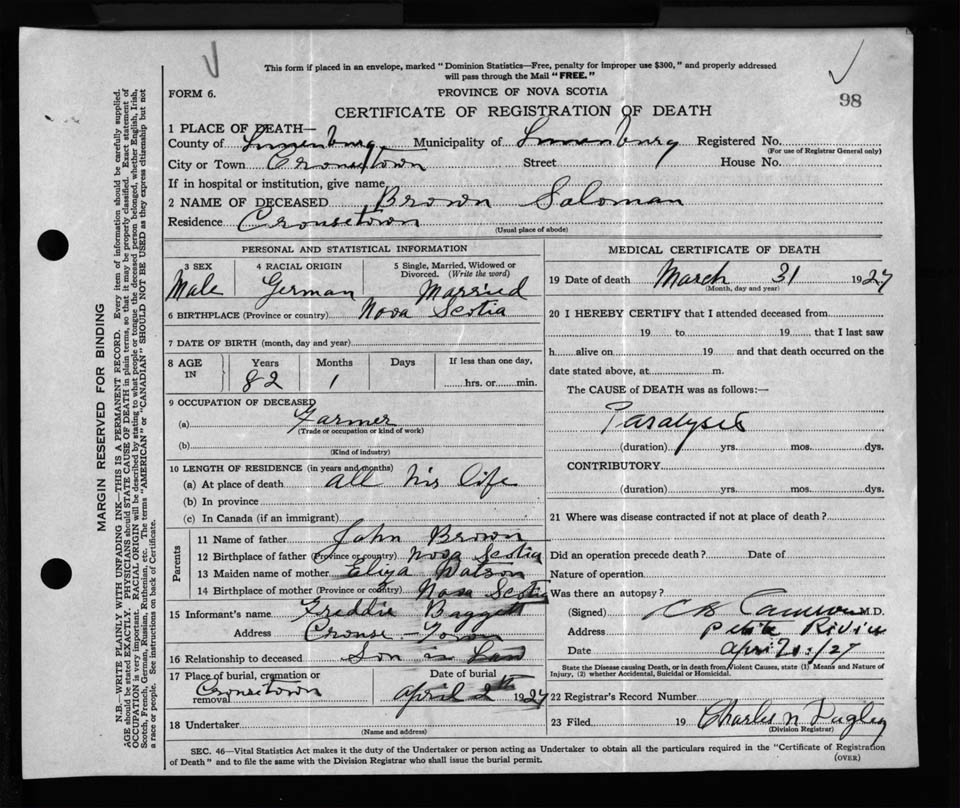 This form if placed in an envelope, marked "Dominion Statistics—Free, penalty for improper use $300," and properly addressed
will pass through the Mail "FREE."
FORM 6.
PROVINCE OF NOVA SCOTIA
98
CERTIFICATE OF REGISTRATION OF DEATH
1 PLACE OF DEATH—
County of Lunenburg Municipality of Lunenburg Registered No.
(For use of Registrar General only)
City or Town Crousetown Street House No.
If in hospital or institution, give name
2 NAME OF DECEASED Brown Saloman
Residence Crousetown
(Usual place of abode)
PERSONAL AND STATISTICAL INFORMATION
3 SEX 4 RACIAL ORIGIN 5 Single, Married, Widowed or
Divorced. (Write the word)
Male German Married
6 BIRTHPLACE (Province or country) Nova Scotia
7 DATE OF BIRTH (month, day and year)
8 AGE IN Years Months Days If less than one day,
82 1 hrs. or min.
9 OCCUPATION OF DECEASED
(a) Farmer
(Trade or occupation or kind of work)
(b)
(Kind of industry)
10 LENGTH OF RESIDENCE (in years and months)
(a) At place of death all his life
(b) In province
(c) In Canada (if an immigrant)
Parents
11 Name of father John Brown
12 Birthplace of father (Province or country) Nova Scotia
13 Maiden name of mother Eliza Watson
14 Birthplace of mother (Province or country) Nova Scotia
15 Informant's name Freddie Baggett
Address Crouse-Town
16 Relationship to deceased Son in Law
17 Place of burial, cremation or removal Date of burial
Crousetown April 2th 1927
18 Undertaker
(Name and address)
MEDICAL CERTIFICATE OF DEATH
19 Date of death March 31 1927
(Month, day and year)
20 I HEREBY CERTIFY that I attended deceased from
19 to 19 that I last saw
h alive on 19 and that death occurred on the
date stated above, at m.
The CAUSE of DEATH was as follows:—
Paralysis
(duration) yrs. mos. dys.
CONTRIBUTORY
(duration) yrs. mos. dys.
21 Where was disease contracted if not at place of death?
Did an operation precede death? Date of
Nature of operation
Was there an autopsy?
(Signed) M.D.
Address Petite Riviere
Date April
State the Disease causing Death, or in death from Violent Causes, state (1) Means and Nature of
Injury, (2) whether Accidental, Suicidal or Homicidal.
22 Registrar's Record Number
23 Filed 19 Charles N
(Division Registrar)
SEC. 46—Vital Statistics Act makes it the duty of the Undertaker or person acting as Undertaker to obtain all the particulars required in the "Certificate of Registration
of Death" and to file the same with the Division Registrar who shall issue the burial permit.
(OVER)
MARGIN RESERVED FOR BINDING
N.B.—WRITE PLAINLY WITH UNFADING INK—THIS IS A PERMANENT RECORD. Every item of information should be carefully supplied.
AGE should be stated EXACTLY. PHYSICIANS should STATE CAUSE OF DEATH in plain terms, so that it may be properly classified. Exact statement of
OCCUPATION is very important. RACIAL ORIGIN will be described by stating to what people or tongue the deceased person belonged, whether English, Irish,
Scotch, French, German, Russian, Ruthenian, etc. The terms "AMERICAN" or "CANADIAN" SHOULD NOT BE USED as they express citizenship but not
a race or people. See instructions on back of Certificate.